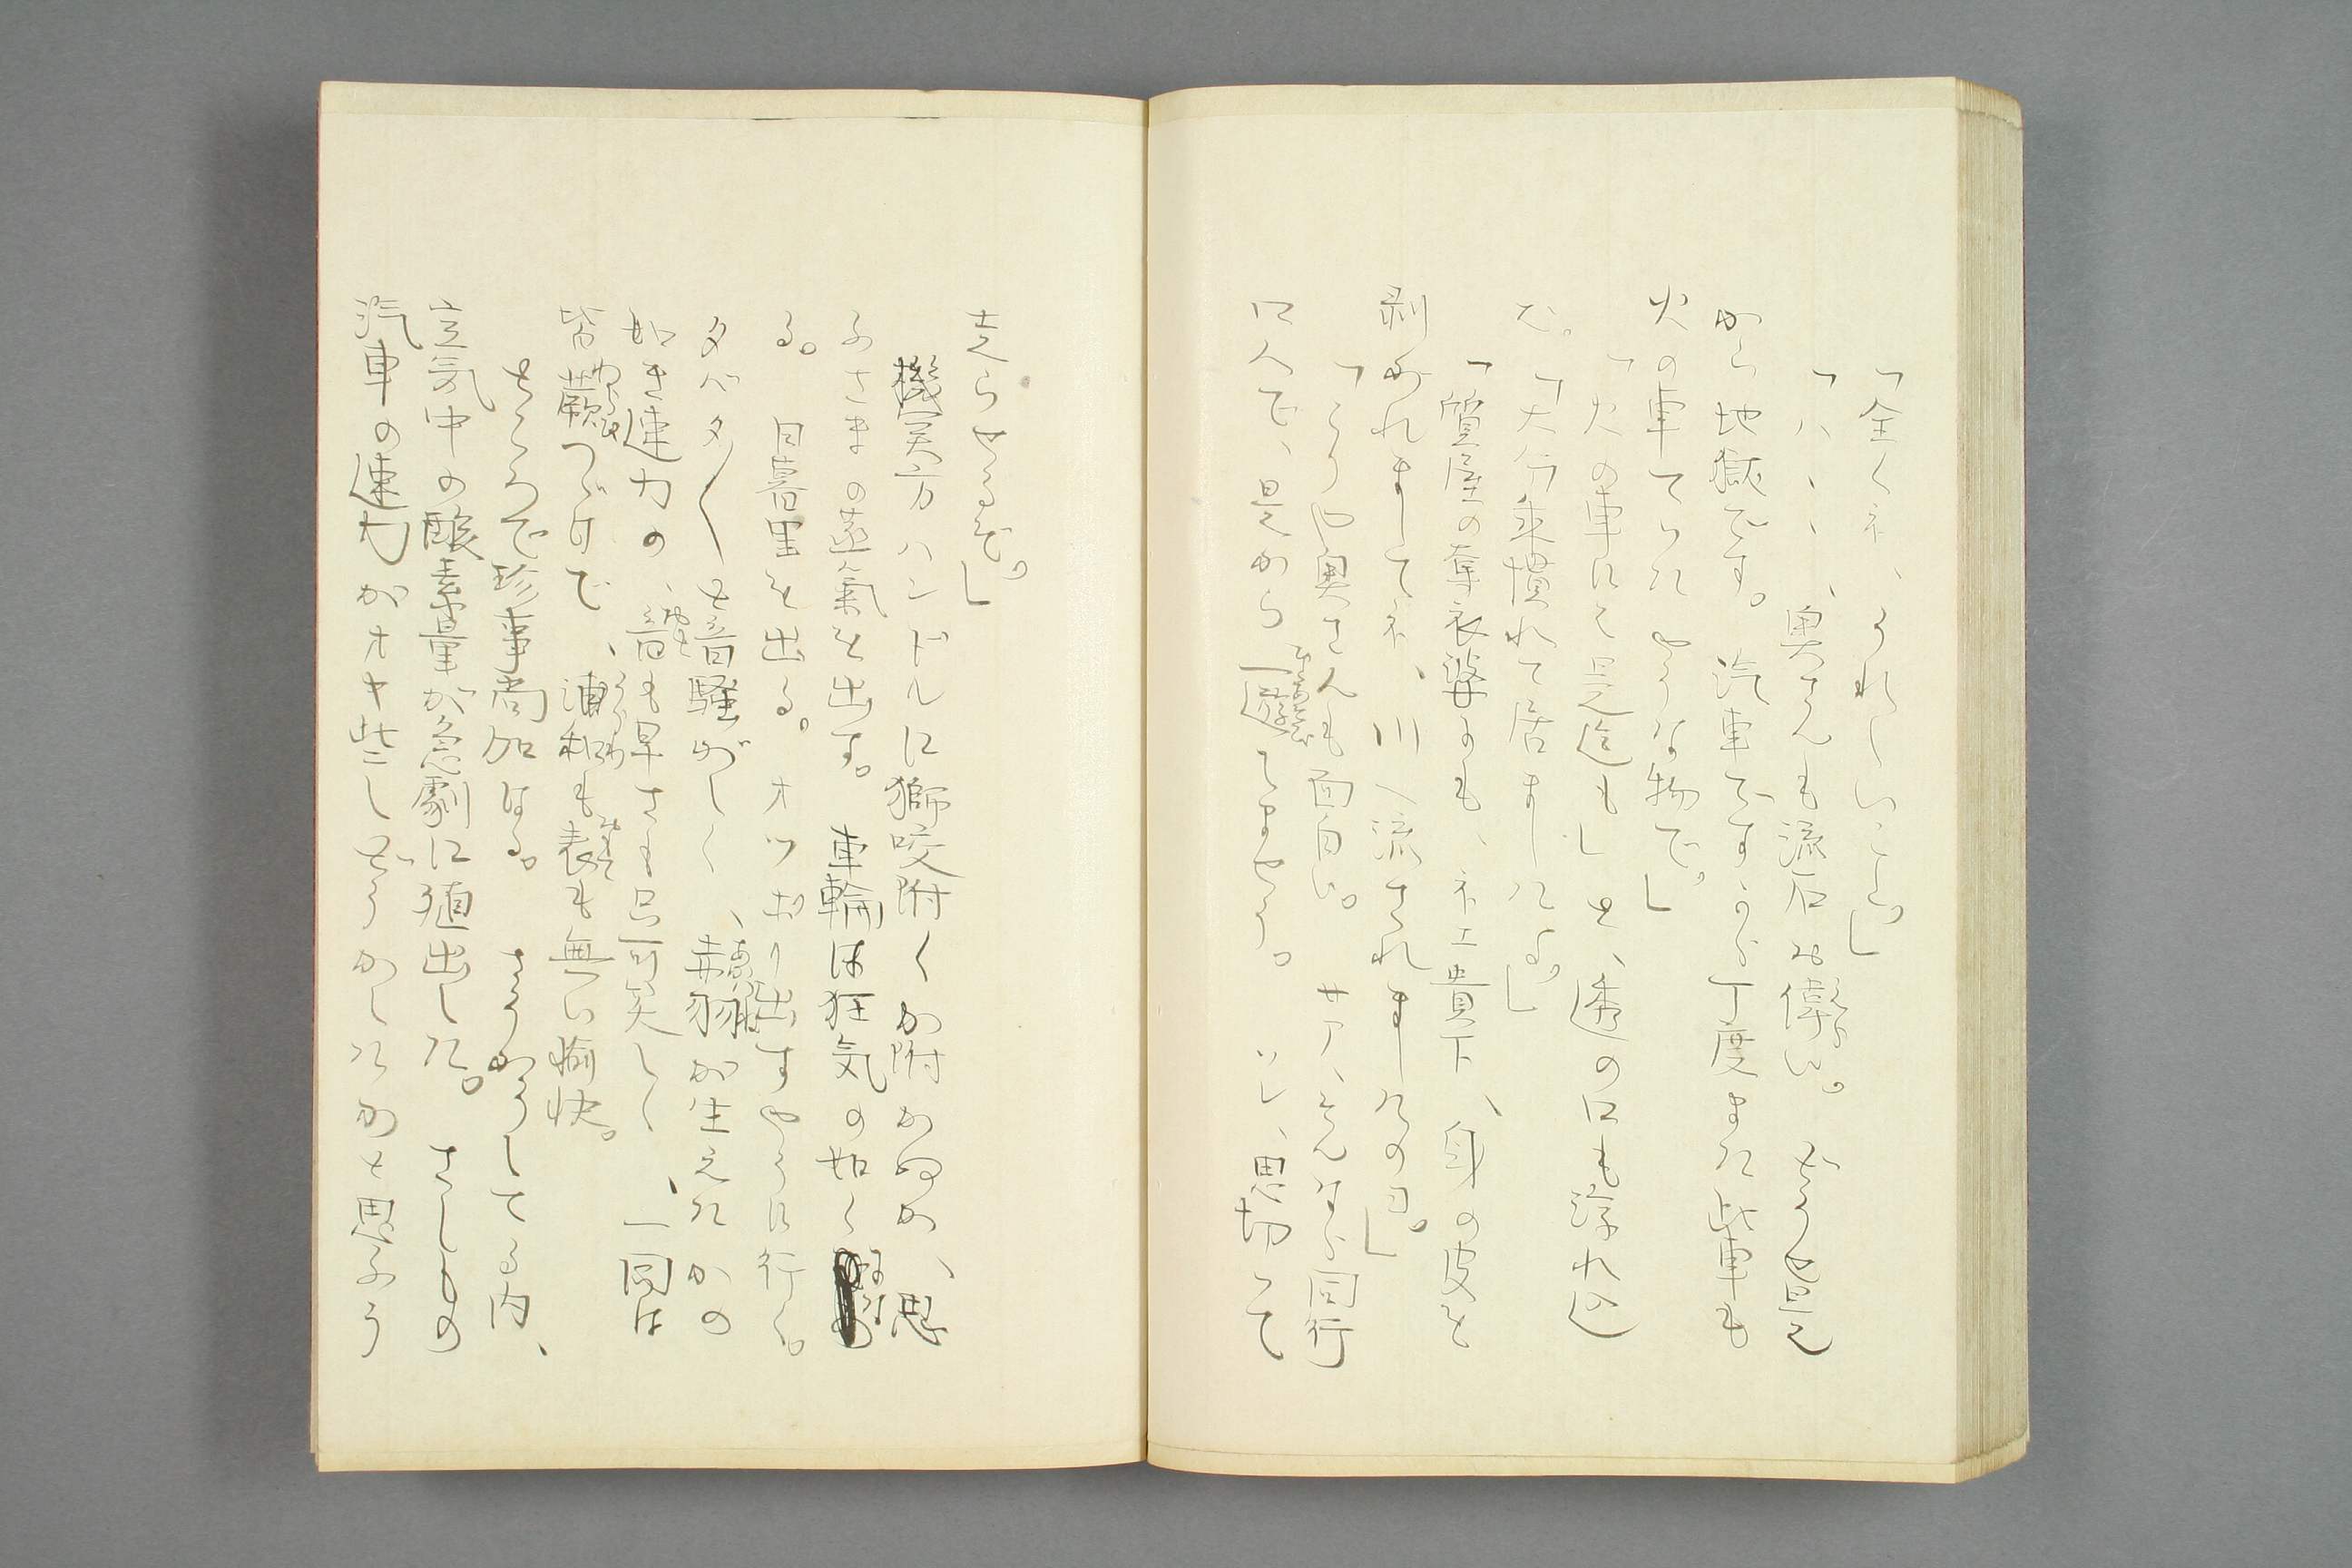 「全くネ、うれしいこと。」
「ハヽヽ、奥さんも流石お偉い。どうせ是
から地獄です。汽車ですから丁度また此車も
火の車てつたやうな物で。」
「火の車にて是迄もしと、遙の口も浮れ
た。「大分乗慣れて居ましたよ。」
「質屋の奪衣婆のも、ネエ貴下、身の皮を
剥がれましてネ、川へ流されましたのヨ。」
「こりや奥さんも面白い。サア、そんなら同行
に人で、是から一趣てませう。ソレ、思切つて
走らせるぞ。」
機実方ハンドルに獅咬附くか附かぬか、思
ふさまの蒸氣を出す。車輪は狂気の如く
る。目暮里を出る。オツおり出すやうに行く。
タバタ〳〵と音騒がしく、赤羽が生えたかの
如き速力の、音も早さも只可笑しく、一同は
皆蕨つゞけで、浦和も表も無い愉快。
ところで珍事尚加はる。さうかうしてる内、
空気中の酸素量が急劇に殖出した。さしもの
汽車の速力がオヤ些しどうかしたかと思ふう